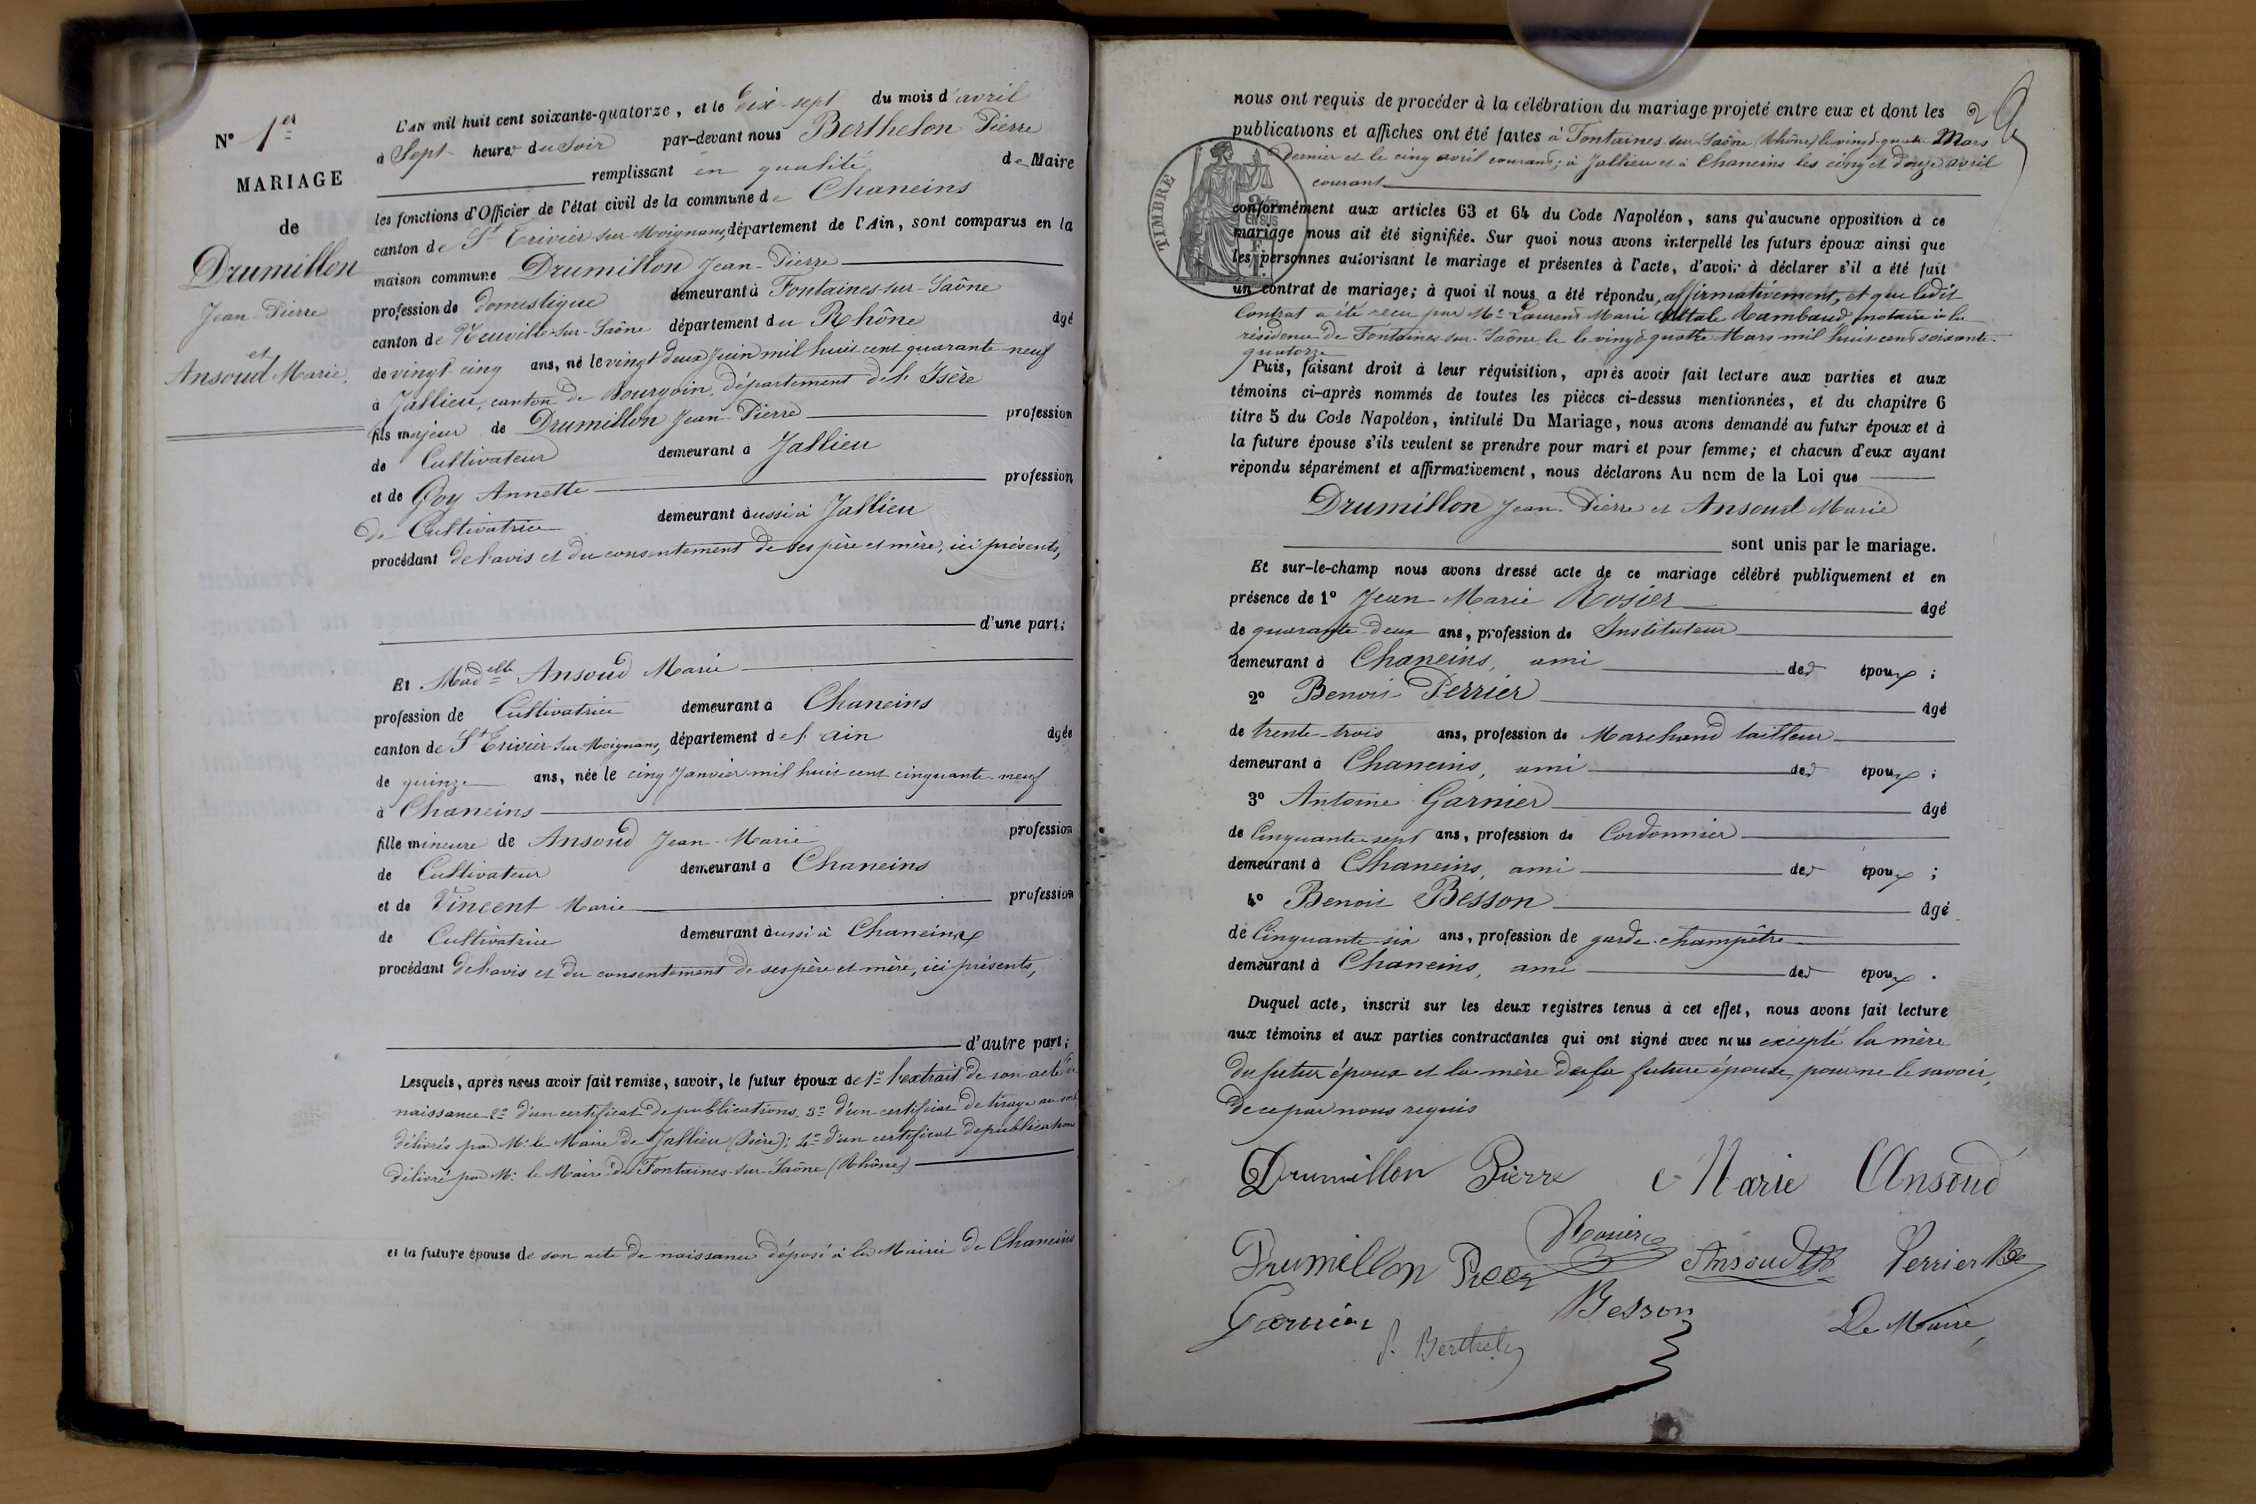 N° 1er
MARIAGE
de
Drumillon
Jean-Pierre
et
Ansoud Marie.
L'AN mil huit cent soixante-quatorze, et le dix-sept du mois d'avril
à Sept heures du Soir par-devant nous Berthelon Pierre
remplissant en qualité de Maire
les fonctions d'Officier de l'état civil de la commune de Chaneins
canton de St Trivier sur Moignans, département de l'Ain, sont comparus en la
maison commune Drumillon Jean-Pierre
profession de domestique demeurant à Fontaines-sur-Saône
canton de Neuville-sur-Saône département du Rhône âgé
de vingt cinq ans, né le vingt deux Juin mil huit cent quarante-neuf
à Jallieu, canton de Bourgoin, département de l'Isère
fils majeur de Drumillon Jean-Pierre profession
de Cultivateur demeurant à Jallieu
et de Goy Annette profession
de Cultivatrice demeurant aussi à Jallieu
procédant de l'avis et du consentement de ses père et mère, ici présents,
d'une part;
Et Madelle Ansoud Marie
profession de Cultivatrice demeurant à Chaneins
canton de St Trivier sur Moignans, département de l'ain âgée
de quinze ans, née le cinq Janvier mil huit cent cinquante-neuf
à Chaneins
fille mineure de Ansoud Jean-Marie profession
de Cultivateur demeurant à Chaneins
et de Vincent Marie profession
de Cultivatrice demeurant aussi à Chaneins
procédant de l'avis et du consentement de ses père et mère, ici présents,
d'autre part;
Lesquels, après nous avoir fait remise, savoir, le futur époux de 1° l'extrait de son acte de
naissance 2° d'un certificat de publications, 3° d'un certificat de tirage au sort
délivrés par Mr le Maire de Jallieu (Isère); 4° d'un certificat de publication
délivré par Mr le Maire de Fontaines-sur-Saône (Rhône)
et la future épouse de son acte de naissance déposé à la Mairie de Chaneins
29
nous ont requis de procéder à la célébration du mariage projeté entre eux et dont les
publications et affiches ont été faites à Fontaines-sur-Saône (Rhône) le vingt-quatre Mars
dernier et le cinq avril courant; à Jallieu et à Chaneins les cinq et douze avril
courant
TIMBRE
conformément aux articles 63 et 64 du Code Napoléon, sans qu'aucune opposition à ce
mariage nous ait été signifiée. Sur quoi nous avons interpellé les futurs époux ainsi que
les personnes autorisant le mariage et présentes à l'acte, d'avoir à déclarer s'il a été fait
un contrat de mariage; à quoi il nous a été répondu affirmativement, et que ledit
Contrat a été reçu par Me Laurent Marie Rambaud, notaire à la
résidence de Fontaines-sur-Saône le le vingt-quatre Mars mil huit cent soixante-
quatorze
Puis, faisant droit à leur réquisition, après avoir fait lecture aux parties et aux
témoins ci-après nommés de toutes les pièces ci-dessus mentionnées, et du chapitre 6
titre 5 du Code Napoléon, intitulé Du Mariage, nous avons demandé au futur époux et à
la future épouse s'ils veulent se prendre pour mari et pour femme; et chacun d'eux ayant
répondu séparément et affirmativement, nous déclarons Au nom de la Loi que
Drumillon Jean-Pierre et Ansoud Marie
sont unis par le mariage.
Et sur-le-champ nous avons dressé acte de ce mariage célébré publiquement et en
présence de 1° Jean-Marie Rosier âgé
de quarante-deux ans, profession de Instituteur
demeurant à Chaneins, ami des époux;
2° Benoit Perrier âgé
de trente-trois ans, profession de Marchand tailleur
demeurant à Chaneins, ami des époux;
3° Antoine Garnier âgé
de Cinquante-sept ans, profession de Cordonnier
demeurant à Chaneins, ami des époux;
4° Benoit Besson âgé
de Cinquante-six ans, profession de garde-champêtre
demeurant à Chaneins, ami des époux.
Duquel acte, inscrit sur les deux registres tenus à cet effet, nous avons fait lecture
aux témoins et aux parties contractantes qui ont signé avec nous excepté la mère
du futur époux et la mère de la future épouse, pour ne le savoir,
de ce par nous requis
Drumillon Pierre Marie Ansoud
Rosier
Drumillon Ansoud Perrier
Garnier Besson Le Maire,
P. Berthelon